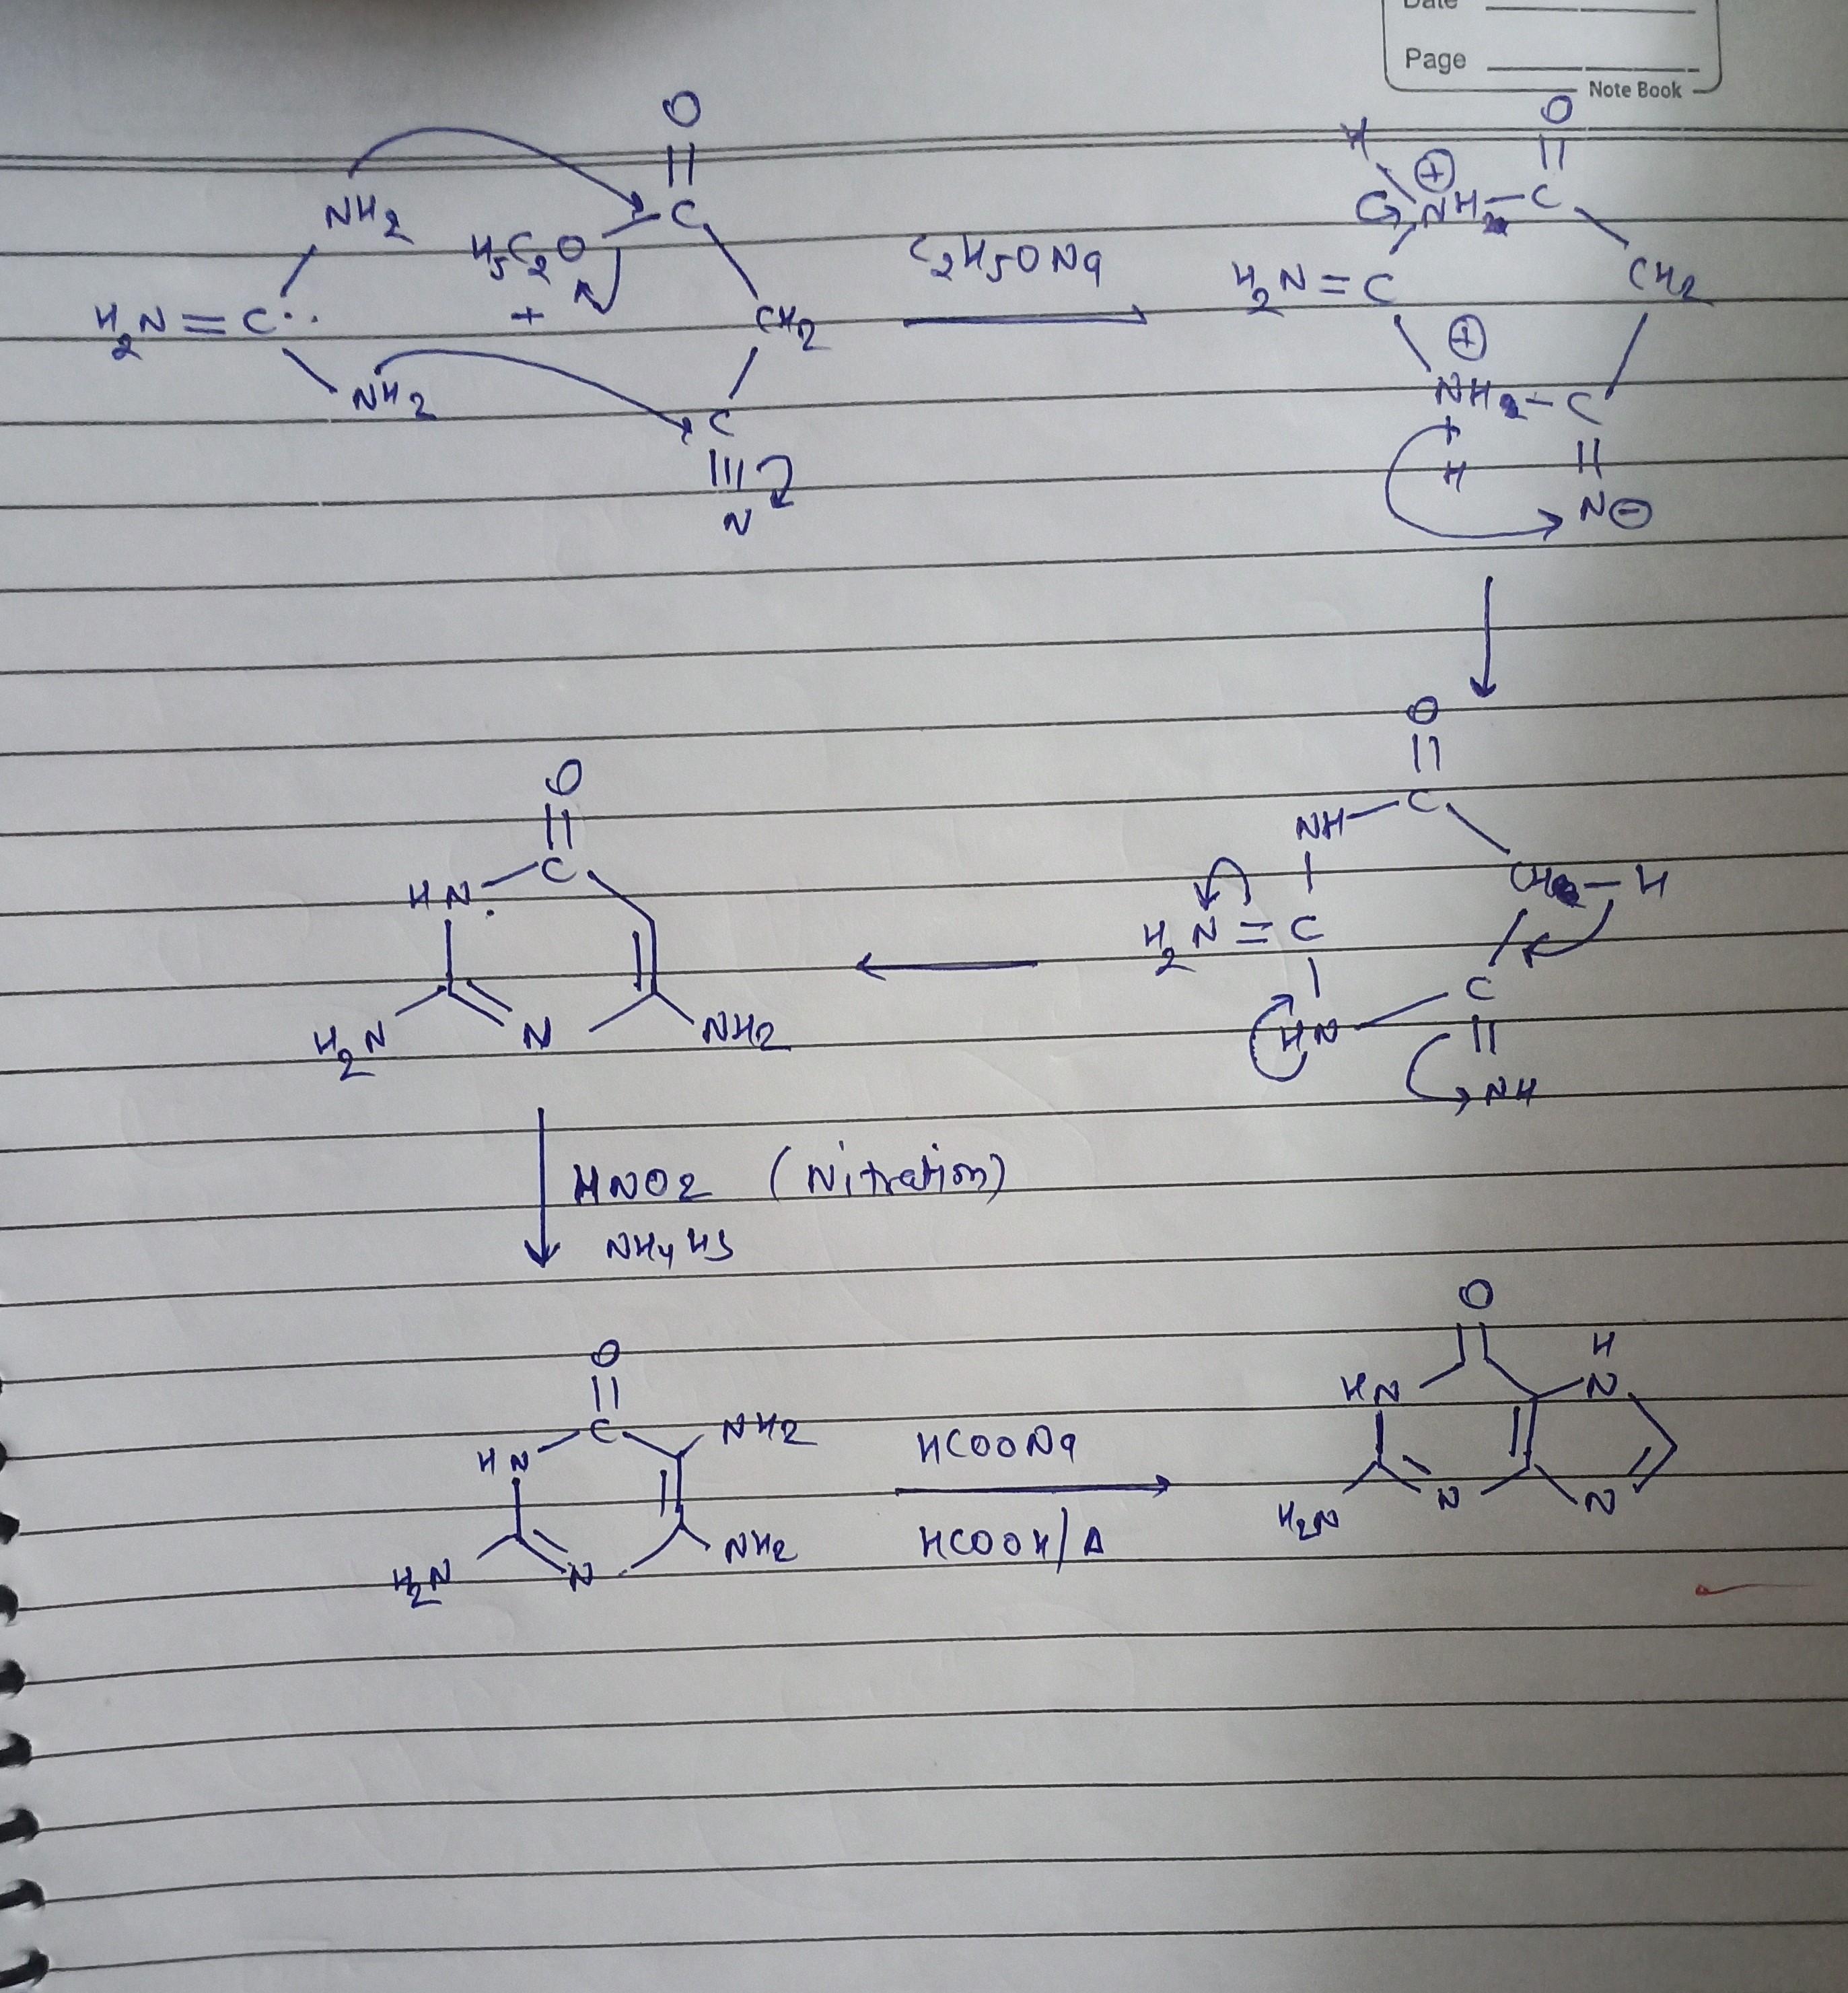 Date
Page
Note Book
O
||
NH2 H5C2O C
H2N = C + CH2
NH2 C
|||
N
C2H5ONa
O
||
H ⊕
NH – C
H2N = C CH2
⊕
NH – C
H ||
N⊖
O
||
NH – C
CH – H
H2N = C
C
HN ||
NH
O
||
HN – C
H2N N NH2
HNO2 (Nitration)
NH4HS
O
||
HN C NH2
H2N N NH2
HCOONa
HCOOH/Δ
O
H
HN N
H2N N N